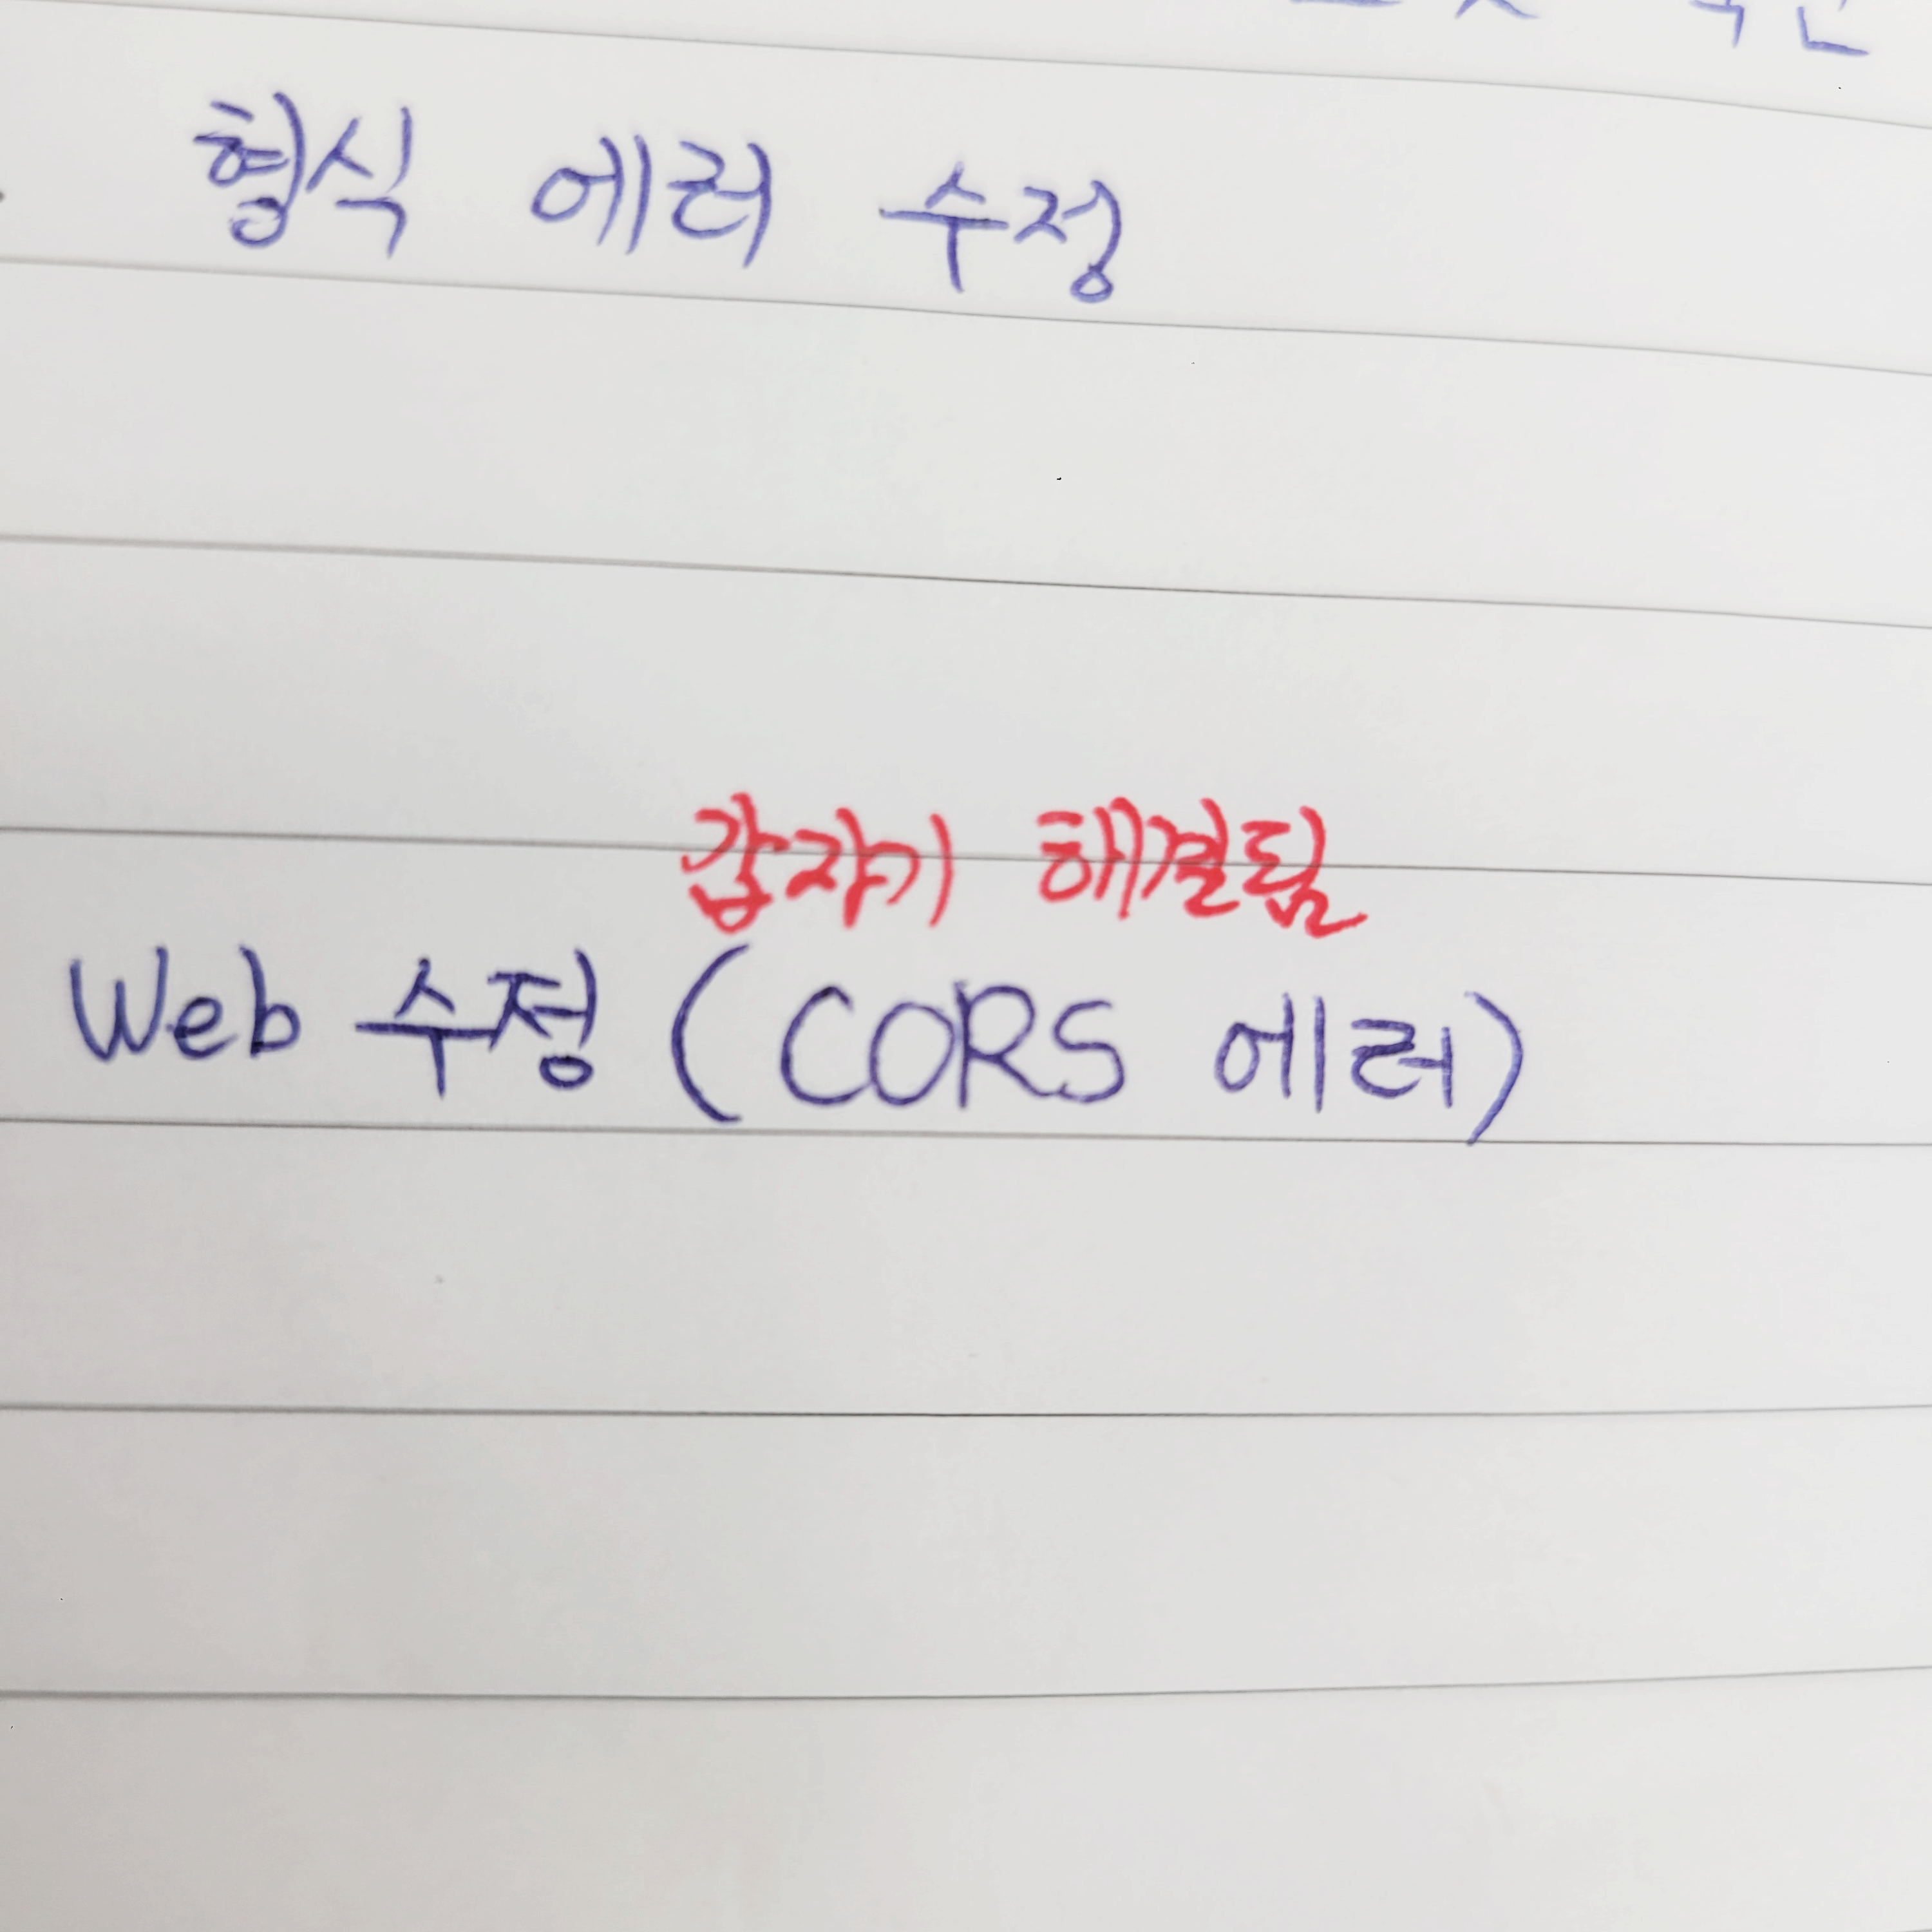 형식 에러 수정
갑자기 해결됨
Web 수정 (CORS 에러)